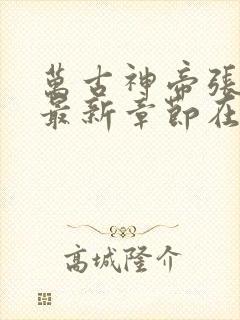 萬古神帝張
最新章節在
高城隆介